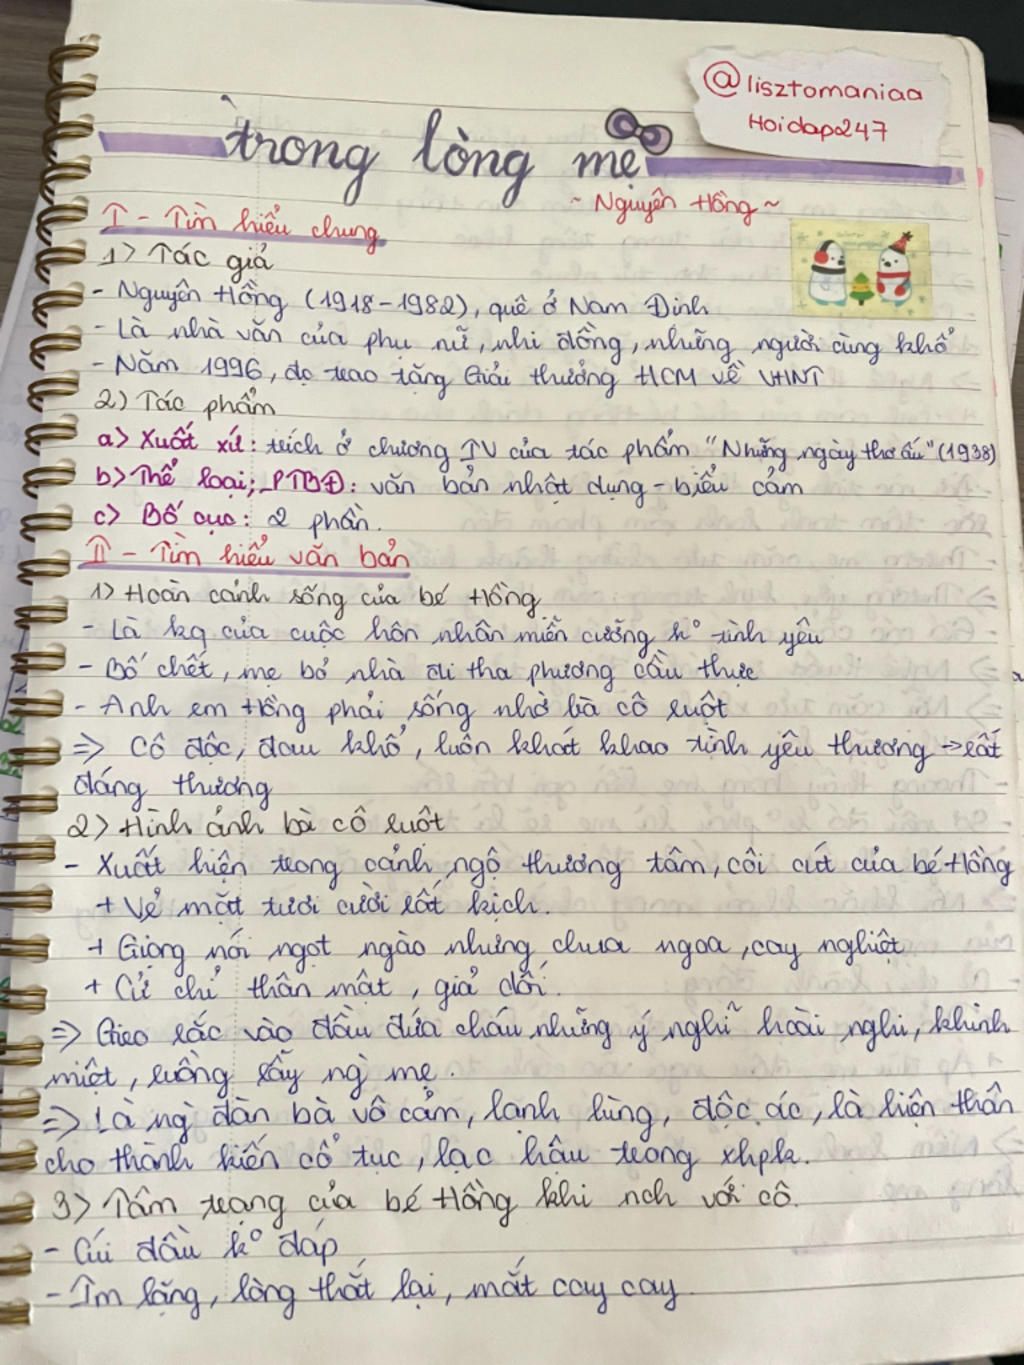 @lisztomaniaa
Hoidap247
Trong lòng mẹ
~ Nguyên Hồng ~
I - Tìm hiểu chung
1> Tác giả
- Nguyên Hồng (1918-1982), quê ở Nam Định
- Là nhà văn của phụ nữ, nhi đồng, những người cùng khổ
- Năm 1996, đc trao tặng Giải thưởng HCM về VHNT
2) Tác phẩm
a> Xuất xứ: trích ở chương IV của tác phẩm "Những ngày thơ ấu" (1938)
b> Thể loại; PTBĐ: văn bản nhật dụng - biểu cảm
c> Bố cục: 2 phần.
II - Tìm hiểu văn bản
1> Hoàn cảnh sống của bé Hồng
- Là kq của cuộc hôn nhân miễn cưỡng k° tình yêu
- Bố chết, mẹ bỏ nhà đi tha phương cầu thực
- Anh em Hồng phải sống nhờ bà cô ruột
=> Cô độc, đau khổ, luôn khát khao tình yêu thương → rất
đáng thương
2> Hình ảnh bà cô ruột
- Xuất hiện trong cảnh ngộ thương tâm, côi cút của bé Hồng
+ Vẻ mặt tươi cười rất kịch.
+ Giọng nói ngọt ngào nhưng chua ngoa, cay nghiệt
+ Cử chỉ thân mật, giả dối.
=> Gieo rắc vào đầu đứa cháu những ý nghĩ hoài nghi, khinh
miệt, ruồng rẫy ng` mẹ.
=> Là ng` đàn bà vô cảm, lạnh lùng, độc ác, là hiện thân
cho thành kiến cổ tục, lạc hậu trong xhpk.
3> Tâm trạng của bé Hồng khi nch với cô.
- Cúi đầu k° đáp
- Im lặng, lòng thắt lại, mắt cay cay